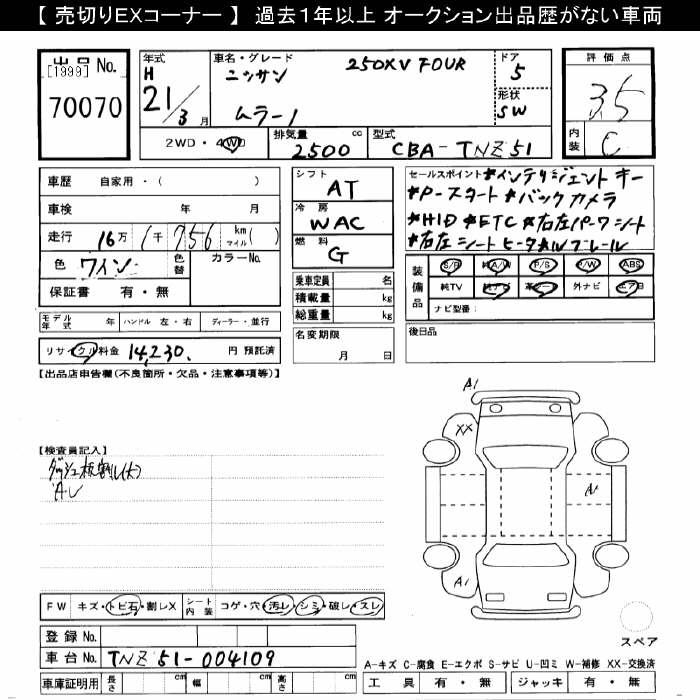 【 売切りEXコーナー 】 過去1年以上 オークション出品歴がない車両
出品 No.
[1999]
70070
年式
H
21/3月
車名・グレード
ニッサン 250XV FOUR
ムラーノ
ドア
5
形状
SW
評価点
3.5
内装
C
2WD・4WD
排気量
2500 cc
型式
CBA-TNZ51
車歴 自家用・( )
車検 年 月
走行 16万1千756 km マイル( )
色 ワイン
色替
カラーNo.
保証書 有・無
シフト
AT
冷房
WAC
燃料
G
乗車定員 名
積載量 kg
総重量 kg
セールスポイント *インテリジェントキー
*Pースタート *バックカメラ
*HID *ETC *右左パワーシート
*右左シートヒータ *ルーフレール
装備品
S/R 純A/W P/S P/W ABS
純TV 純ナビ 革シート 外ナビ エアB
ナビ型番:
モデル年式 年 ハンドル 左・右 ディーラー・並行
名変期限
月 日
後日品
リサイクル料金 14,230. 円 預託済
【出品店申告欄(不良箇所・欠品・注意事項等)】
A1
XX
【検査員記入】
ダッシュ板割レ(大)
A1
FW キズ・トビ石・割レX
シート内装 コゲ・穴・汚レ・シミ・破レ・スレ
スペア
登録 No.
車台 No. TNZ51-004109
A-キズ C-腐食 E-エクボ S-サビ U-凹ミ W-補修 XX-交換済
車庫証明用 長さ cm 幅 cm 高さ cm
工具 有・無 ジャッキ 有・無